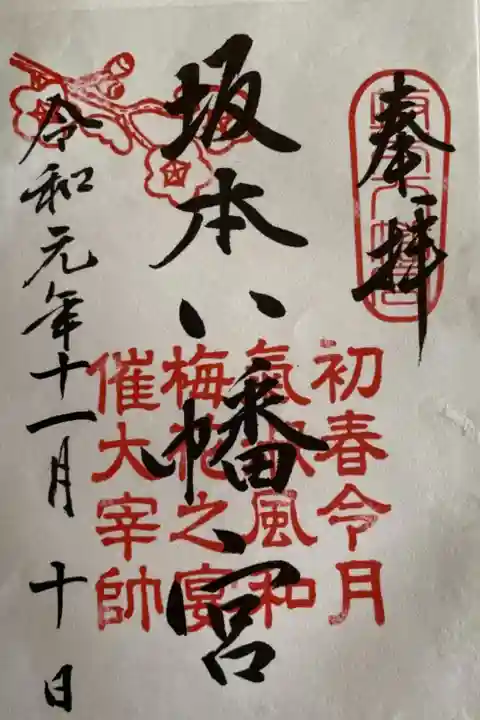 奉拝
坂本八幡宮
令和元年十一月十日
初春令月
氣淑風和
梅花之宴
催大宰帥